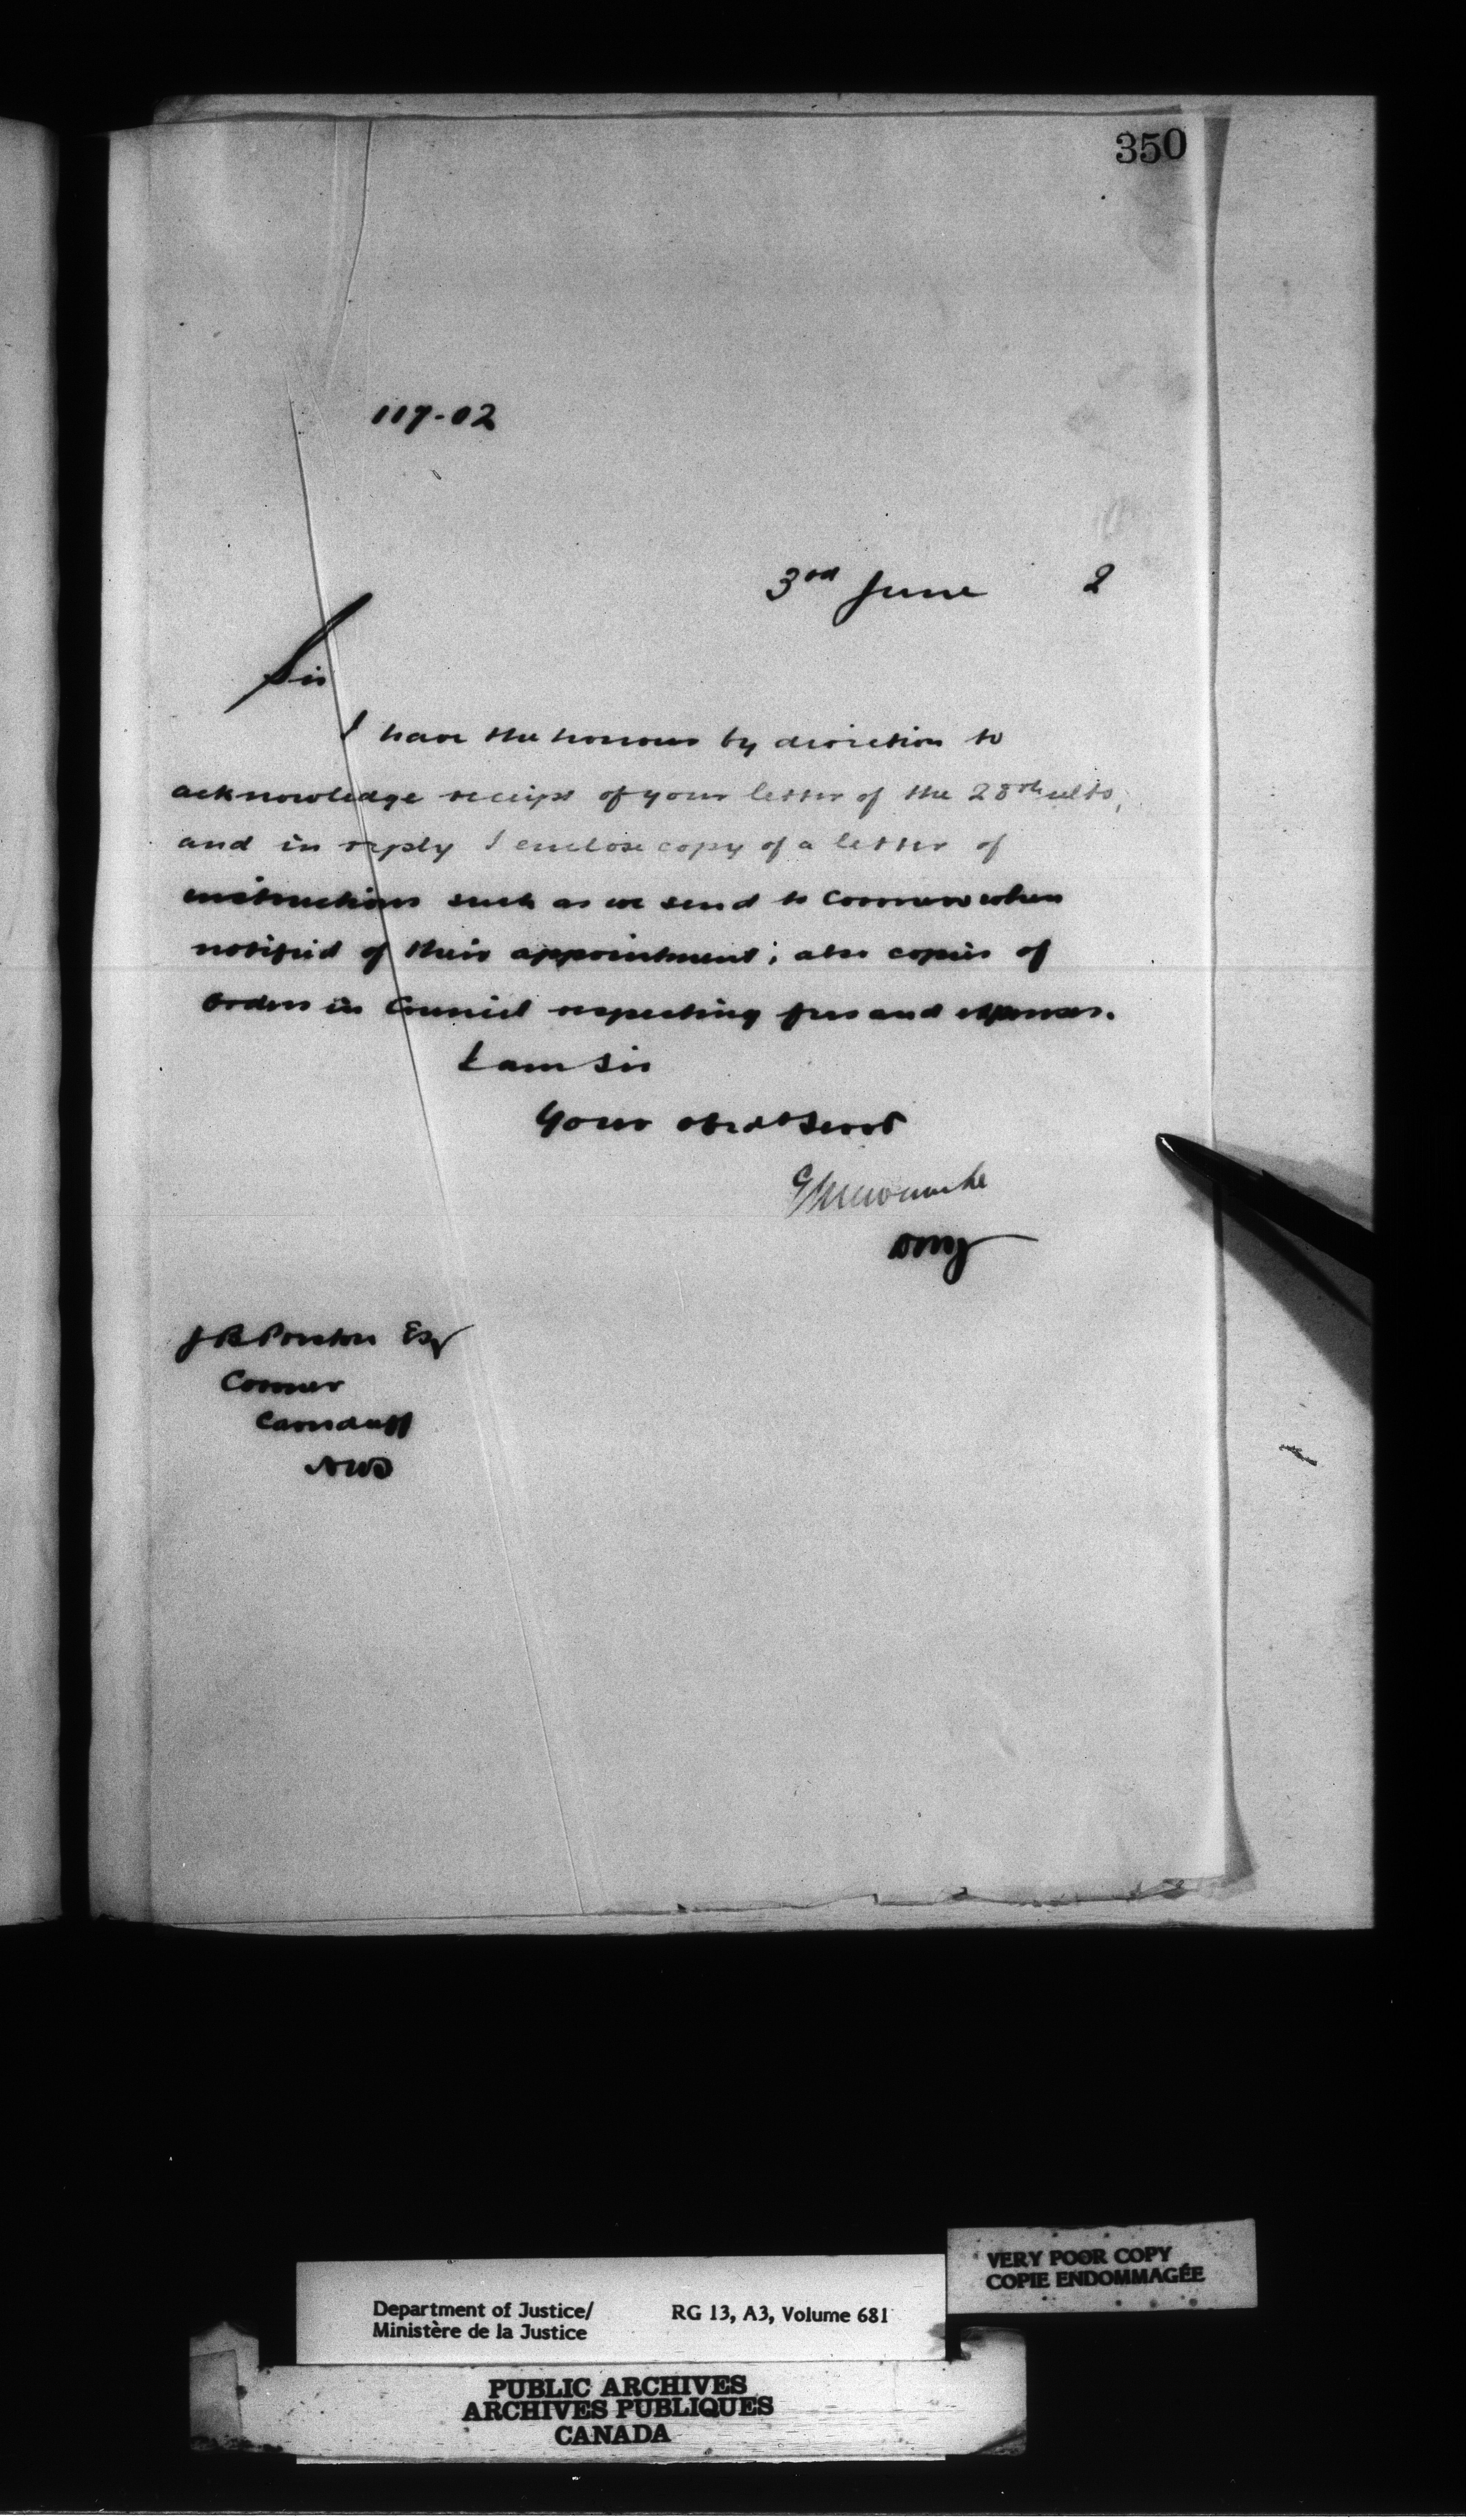 350
117-02
3rd June 2
Sir
I have the honour by direction to
acknowledge receipt of your letter of the 28th ulto,
and in reply I enclose copy of a letter of
instructions such as we send to Coroners when
notified of their appointment; also copies of
Orders in Council respecting fees and expenses.
I am Sir
Your obdt Servt
E L Newcombe
DMJ
J B Esq
Coroner
Carnduff
NWT
VERY POOR COPY
COPIE ENDOMMAGÉE
Department of Justice/ RG 13, A3, Volume 681
Ministère de la Justice
PUBLIC ARCHIVES
ARCHIVES PUBLIQUES
CANADA